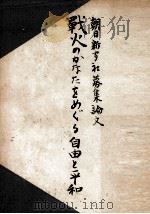 朝日新聞社募集論文
戰火のかなたをめぐる自由と平和